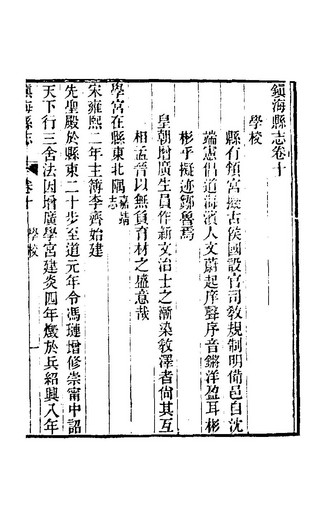 鎭海縣志卷十
學校
縣有頖宮擬古侯國設官司敎規制明備邑自沈
端憲倡道海濱人文蔚起庠聲序音鏘洋盈耳彬
彬乎擬迹鄒魯焉
皇朝增廣生員作新文治士之漸染敎澤者尙其互
相孟晉以無負育材之盛意哉
學宮在縣東北隅嘉靖志
宋雍熙二年主簿李齊始建
先聖殿於縣東二十步至道元年令馮璉增修崇甯中詔
天下行三舍法因增廣學宮建炎四年燬於兵紹興八年
鎭海縣志 卷十 學校 一